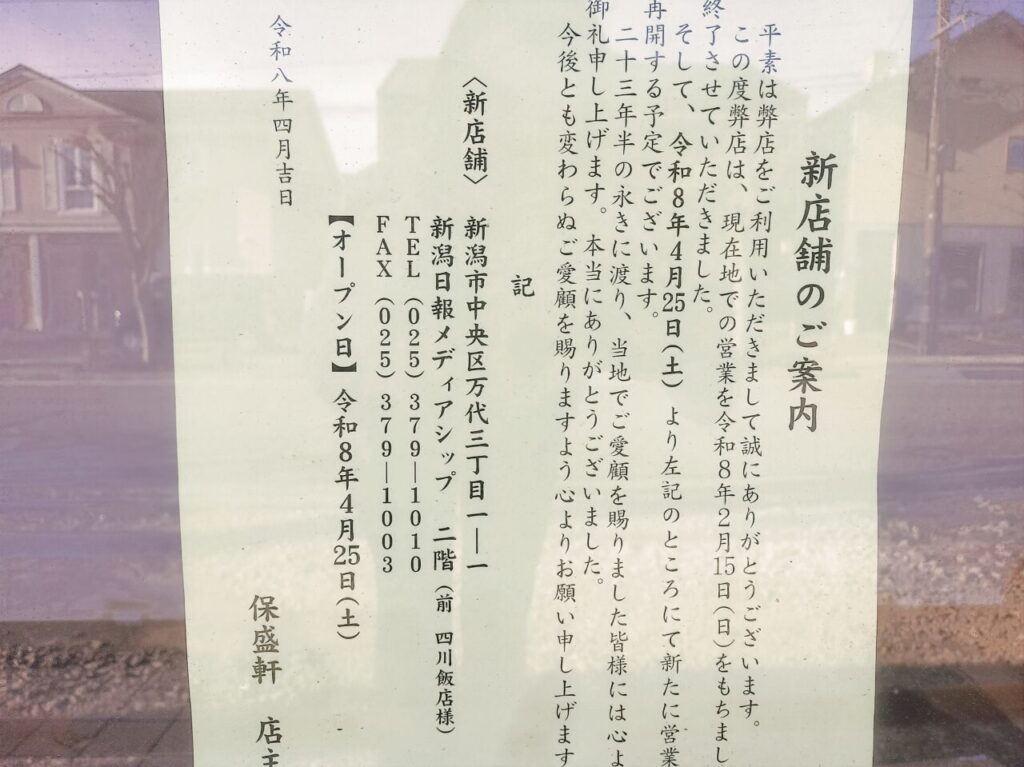 新店舗のご案内
平素は弊店をご利用いただきまして誠にありがとうございます。
この度弊店は、現在地での営業を令和8年2月15日(日)をもちまし
終了させていただきました。
そして、令和8年4月25日(土)より左記のところにて新たに営業
再開する予定でございます。
二十三年半の永きに渡り、当地でご愛顧を賜りました皆様には心よ
御礼申し上げます。本当にありがとうございました。
今後とも変わらぬご愛顧を賜りますよう心よりお願い申し上げます
記
〈新店舗〉 新潟市中央区万代三丁目一―一
新潟日報メディアシップ 二階(前 四川飯店様)
TEL (025)379―1010
FAX (025)379―1003
【オープン日】令和8年4月25日(土)
令和八年四月吉日
保盛軒 店主